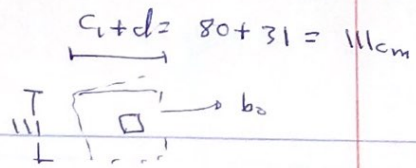 C₁+d= 80+31 = 111cm
b₀
111